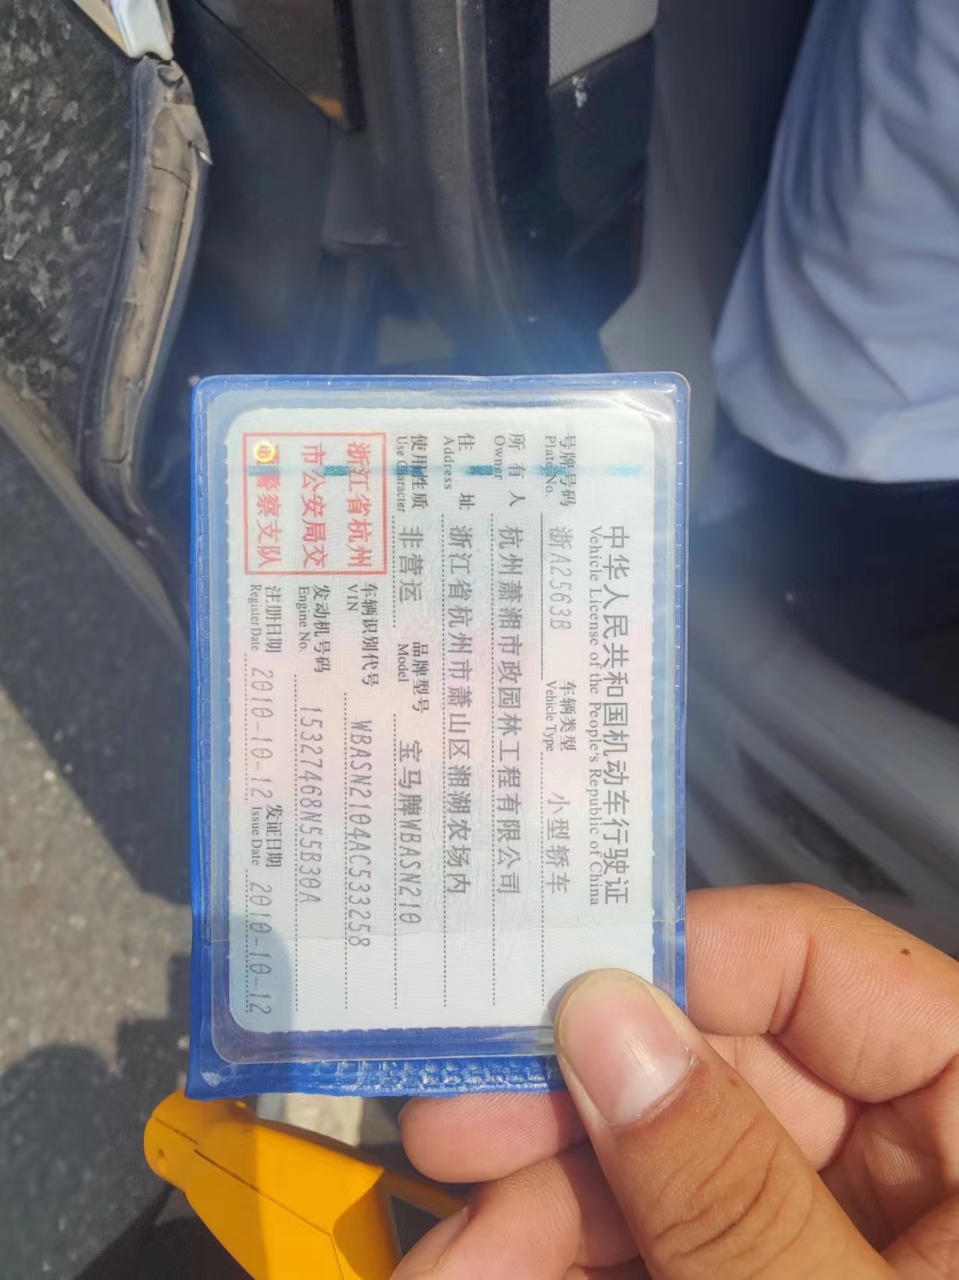 中华人民共和国机动车行驶证
Vehicle License of the People's Republic of China
号牌号码 浙A2563B 车辆类型 小型轿车
Plate No. Vehicle Type
所有人 杭州萧湘市政园林工程有限公司
Owner
住址 浙江省杭州市萧山区湘湖农场内
Address
使用性质 非营运 品牌型号 宝马牌WBASN210
Use Character Model
浙江省杭州
市公安局交
警察支队
车辆识别代号 WBASN2104AC533258
VIN
发动机号码 15327468N55B30A
Engine No.
注册日期 2010-10-12 发证日期 2010-10-12
Register Date Issue Date